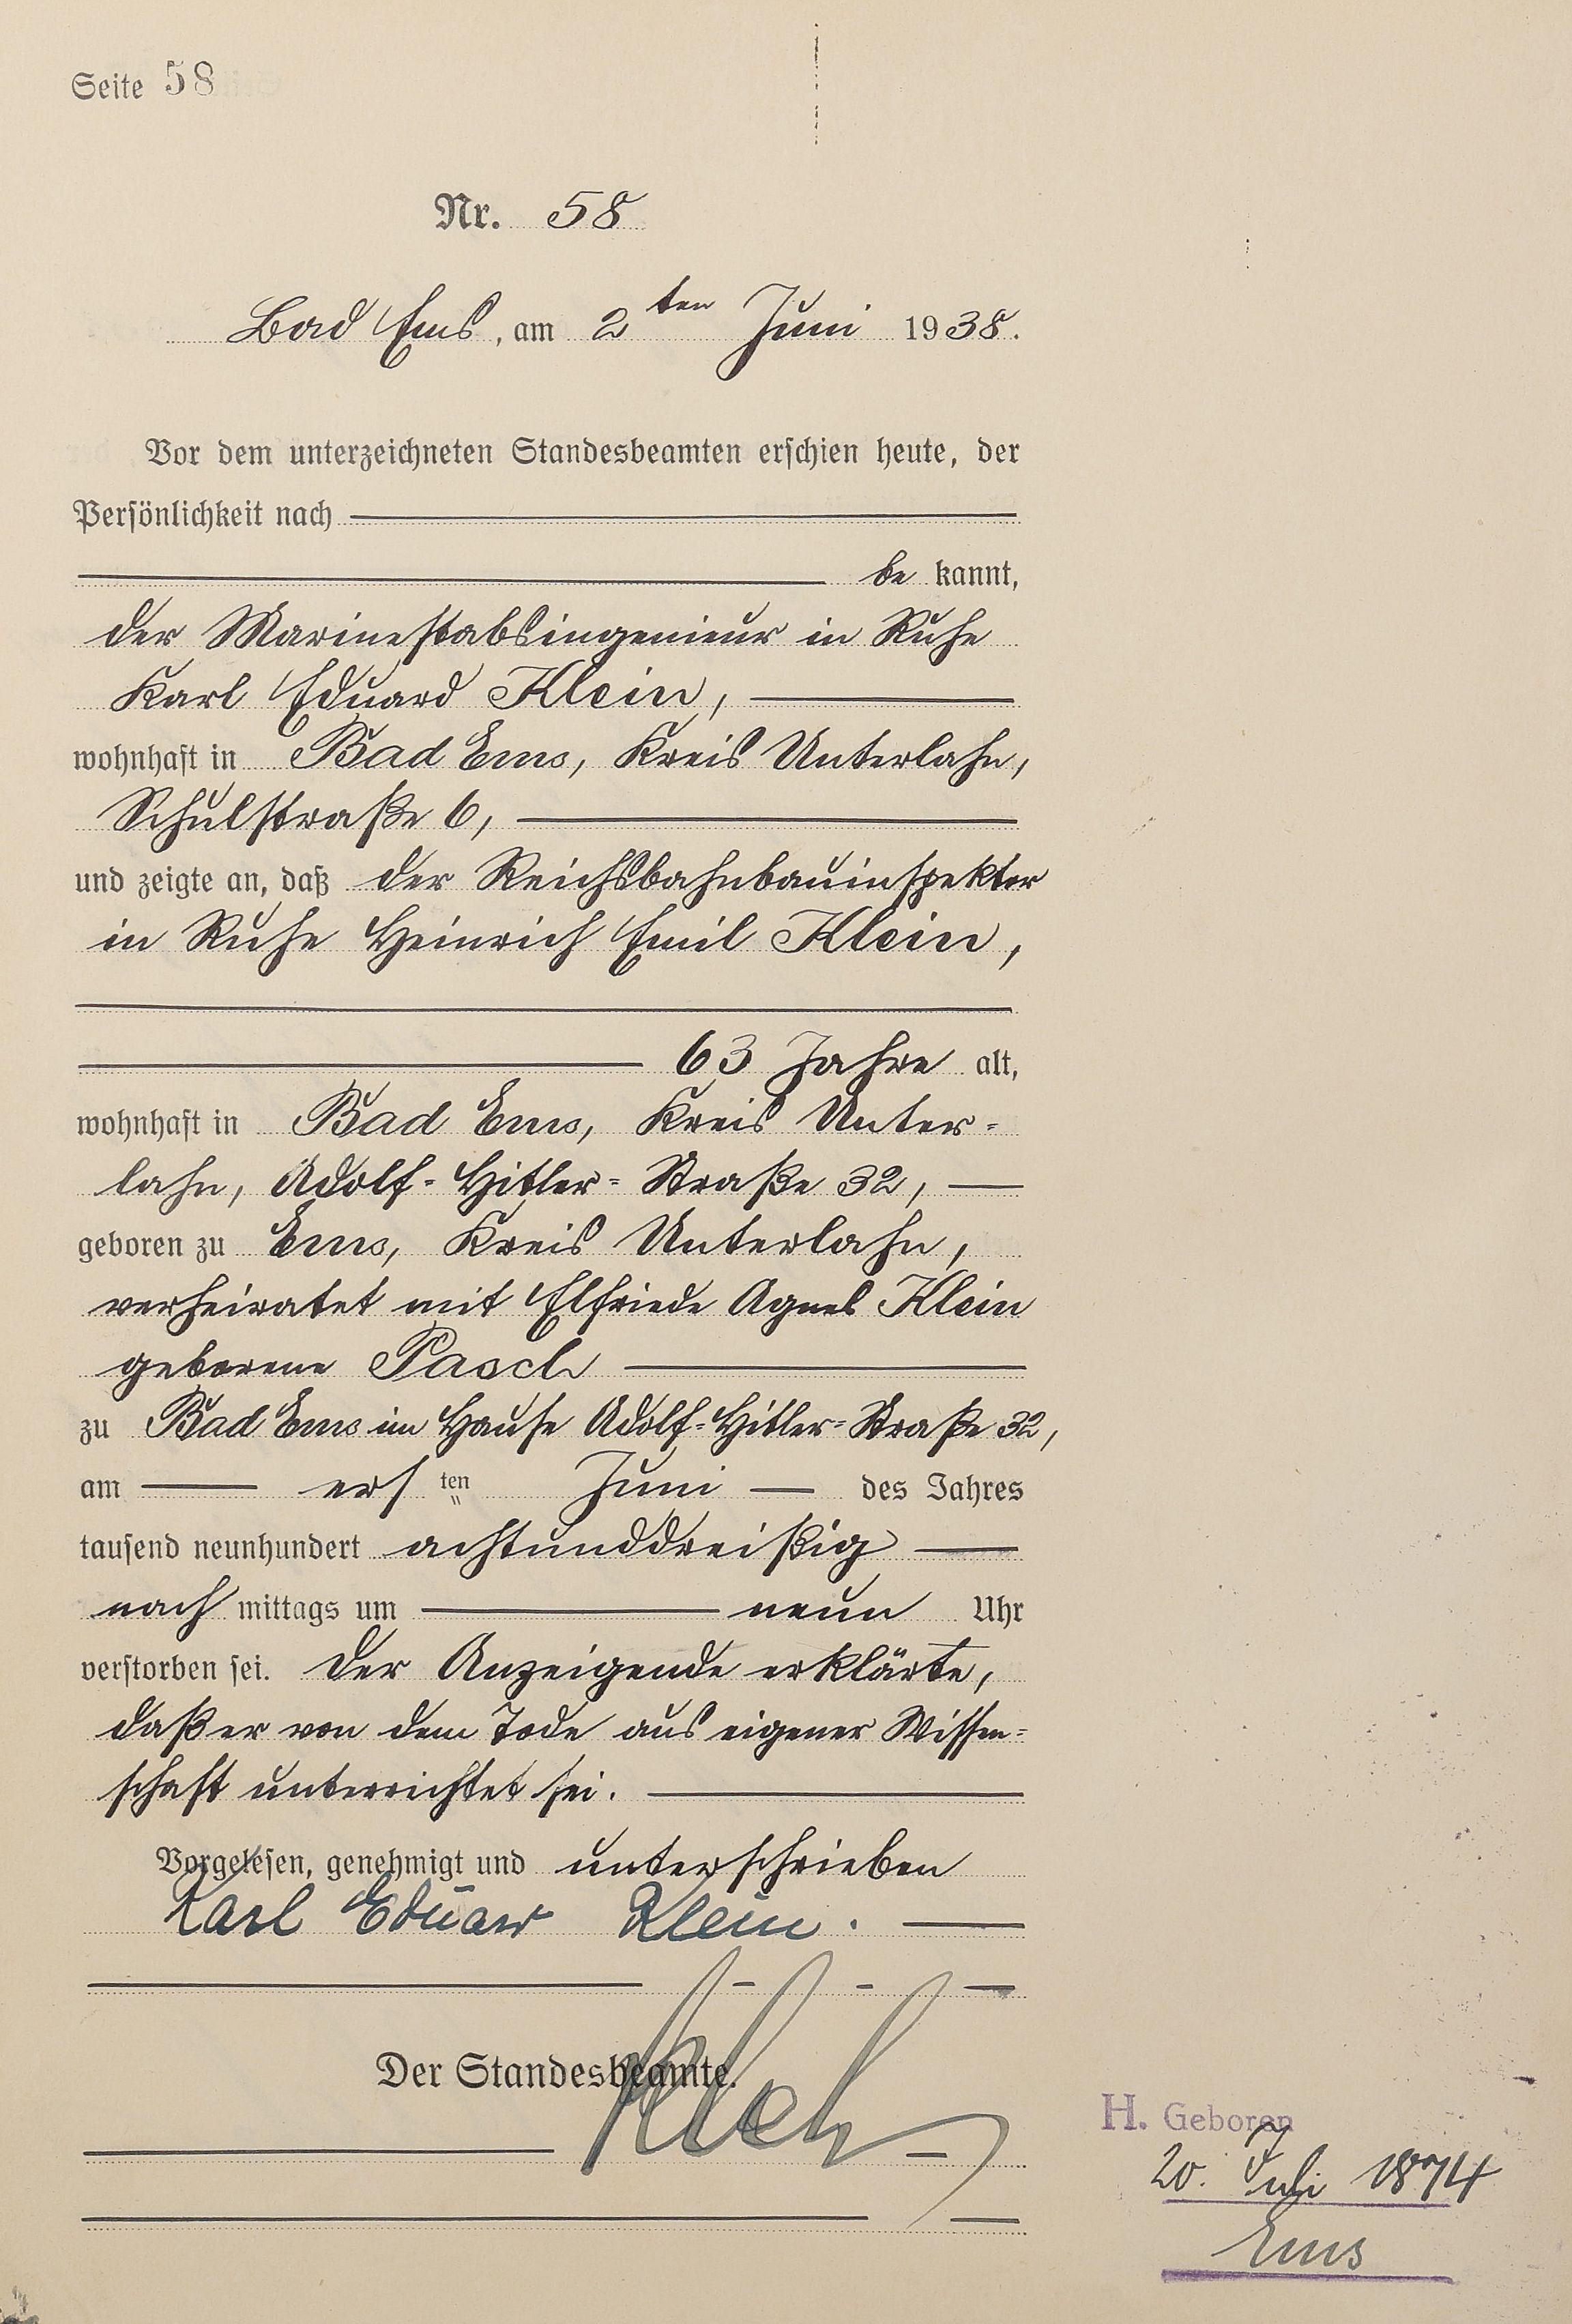 Seite 58
Nr. 58
Bad Ems, am 2ten Juni 1938.
Vor dem unterzeichneten Standesbeamten erschien heute, der
Persönlichkeit nach
be kannt,
der Marinestabsingenieur in Ruhe
Karl Eduard Klein,
wohnhaft in Bad Ems, Kreis Unterlahn,
Schulstraße 6,
und zeigte an, daß der Reichsbahnbauinspektor
in Ruhe Heinrich Emil Klein,
63 Jahre alt,
wohnhaft in Bad Ems, Kreis Unter-
lahn, Adolf-Hitler-Straße 32,
geboren zu Ems, Kreis Unterlahn,
verheiratet mit Elfriede Agnes Klein
geborene Pasch
zu Bad Ems im Hause Adolf-Hitler-Straße 32,
am ersten Juni des Jahres
tausend neunhundert achtunddreißig
nach mittags um neun Uhr
verstorben sei. Der Anzeigende erklärte,
daß er von dem Tode aus eigener Wissen-
schaft unterrichtet sei.
Vorgelesen, genehmigt und unterschrieben
Karl Eduard Klein.
Der Standesbeamte.
H. Geboren
20. Juli 1874
Ems